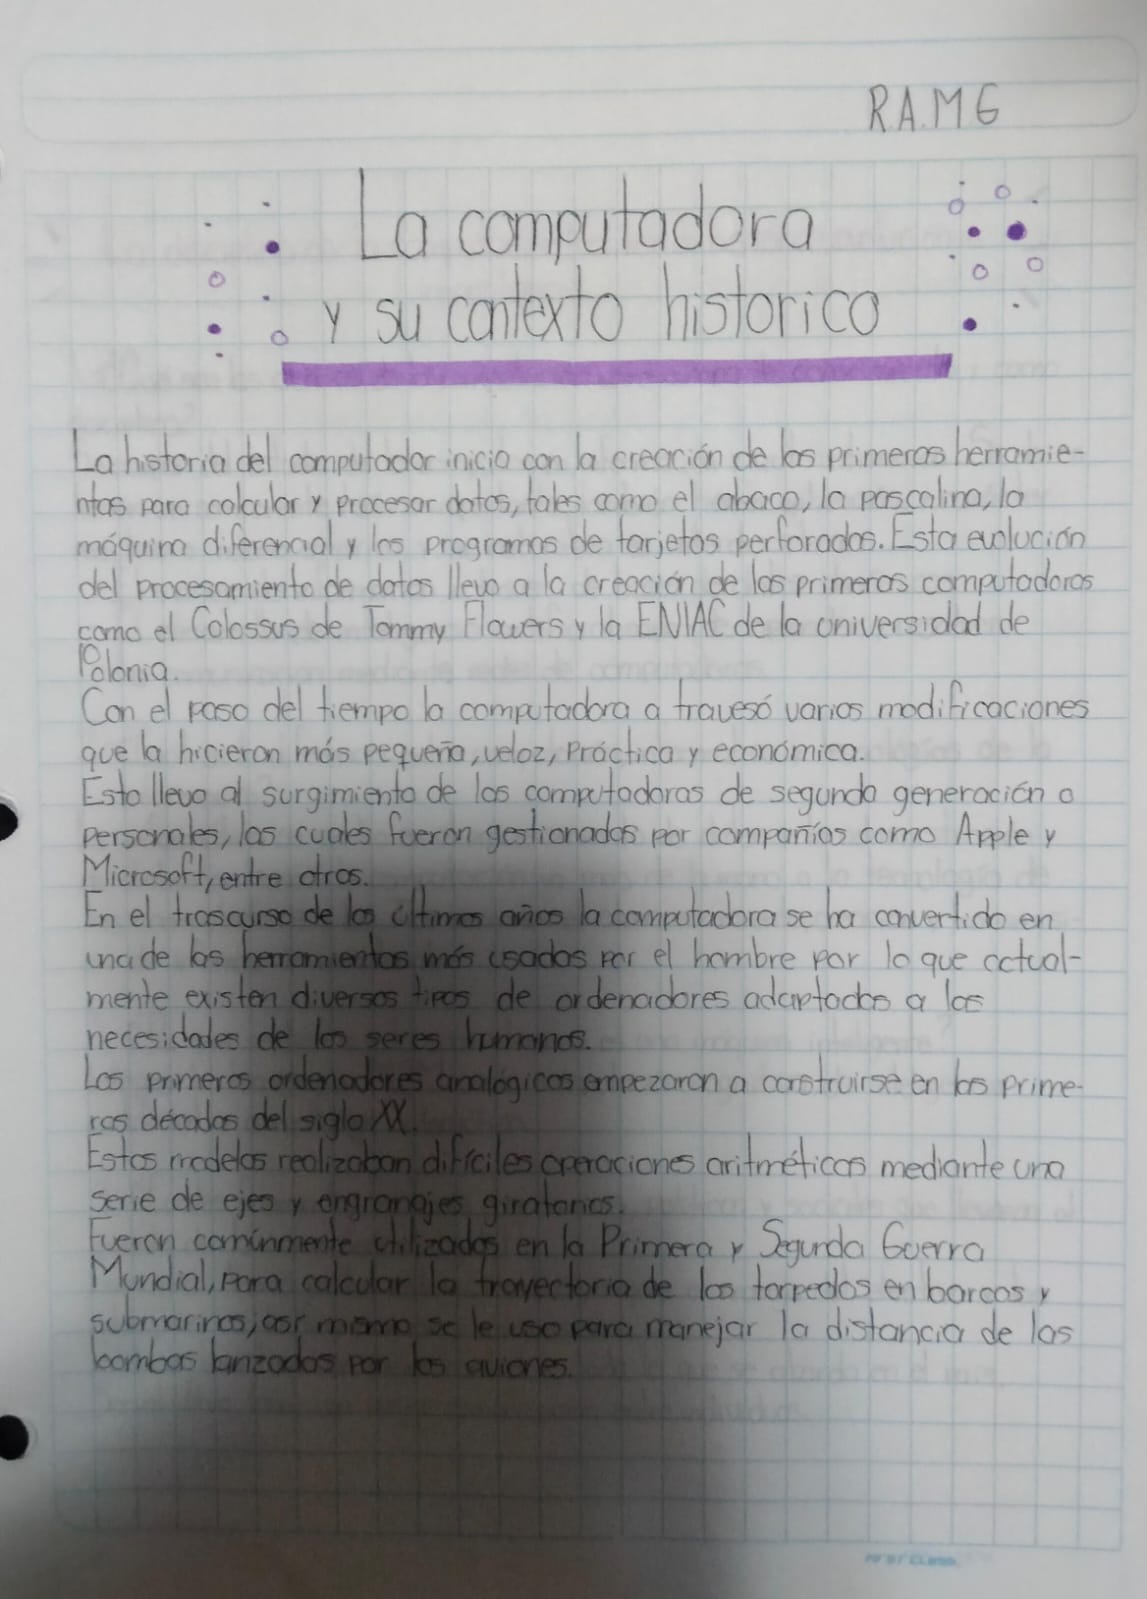 R.A.M G
La computadora
y su contexto historico
La historia del computador inicio con la creación de las primeras herramie-
ntas para calcular y procesar datos, tales como el abaco, la pascalina, la
máquina diferencial y los programas de tarjetas perforadas. Esta evolución
del procesamiento de datos llevo a la creación de las primeras computadoras
como el Colossus de Tommy Flowers y la ENIAC de la universidad de
Polonia.
Con el paso del tiempo la computadora a travesó varios modificaciones
que la hicieron más pequeña, veloz, Práctica y económica.
Esto llevo al surgimiento de las computadoras de segunda generación o
personales, las cuales fueron gestionadas por compañías como Apple y
Microsoft, entre otros.
En el trascurso de los últimos años la computadora se ha convertido en
una de las herramientas más usadas por el hombre por lo que actual-
mente existen diversos tipos de ordenadores adaptados a las
necesidades de los seres humanos.
Los primeros ordenadores analógicos empezaron a construirse en las prime-
ras décadas del siglo XX.
Estos modelos realizaban difíciles operaciones aritméticas mediante una
serie de ejes y engranajes giratorios.
Fueron comúnmente utilizados en la Primera y Segunda Guerra
Mundial, para calcular la trayectoria de los torpedos en barcos y
submarinos, asi mismo se le uso para manejar la distancia de las
bombas lanzadas por los aviones.